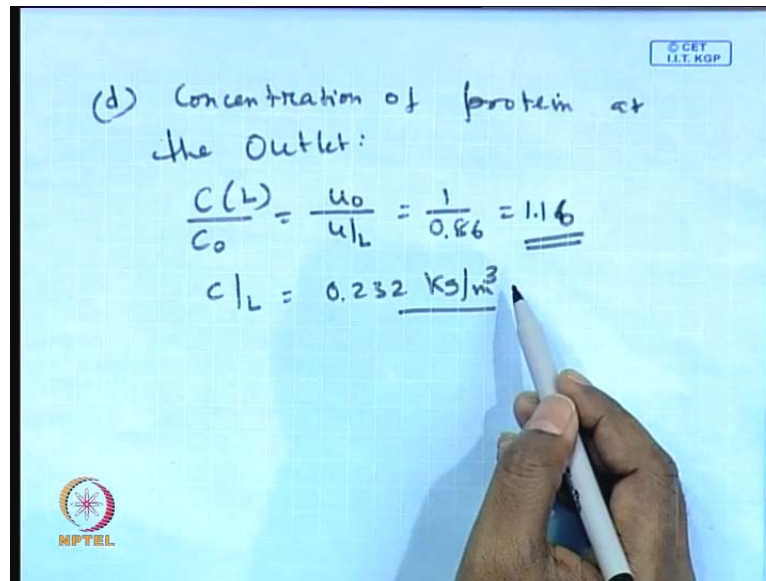 © CET
I.I.T. KGP
(d) Concentration of protein at
the Outlet:
C(L)/C₀ = u₀/u|L = 1/0.86 = 1.16
C|L = 0.232 Kg/m³
NPTEL